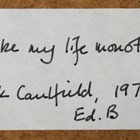 ke my life monot
k Caulfield, 197
Ed. B